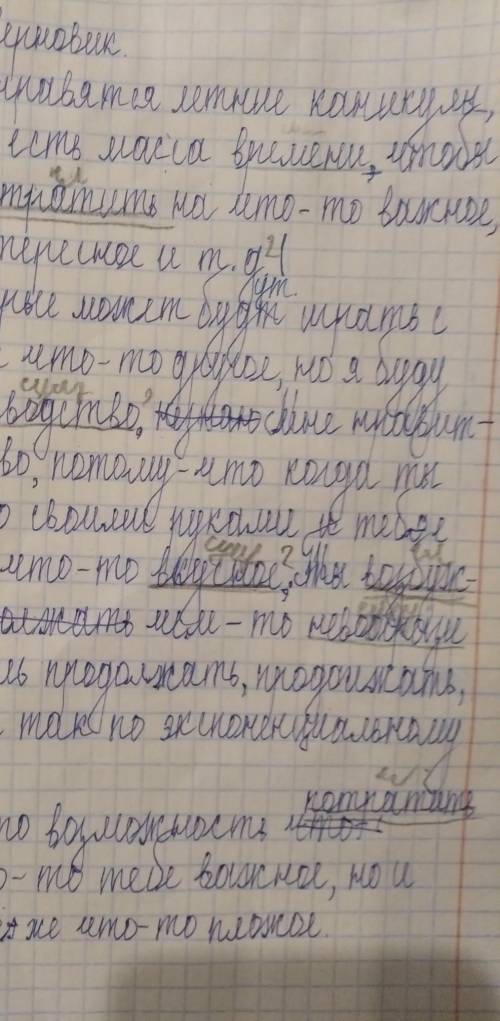 ерновик.
нравятся летние каникулы,
есть масса времени, чтобы
гл
тратить на что-то важное,
тересное и т.д
ут.
рые может будт играть с
что-то другое, но я буду
сущ
водство, незнаю Мне нравит-
во, потому-что когда ты
о своими руками и тебе
сущ ? гл
что-то вкусное, ты возбуж-
олжать чем-то
ль продолжать, продолжать,
так по экспоненциальному
потратить
то возможность что-
о-то тебе важное, но и
же что-то плохое.